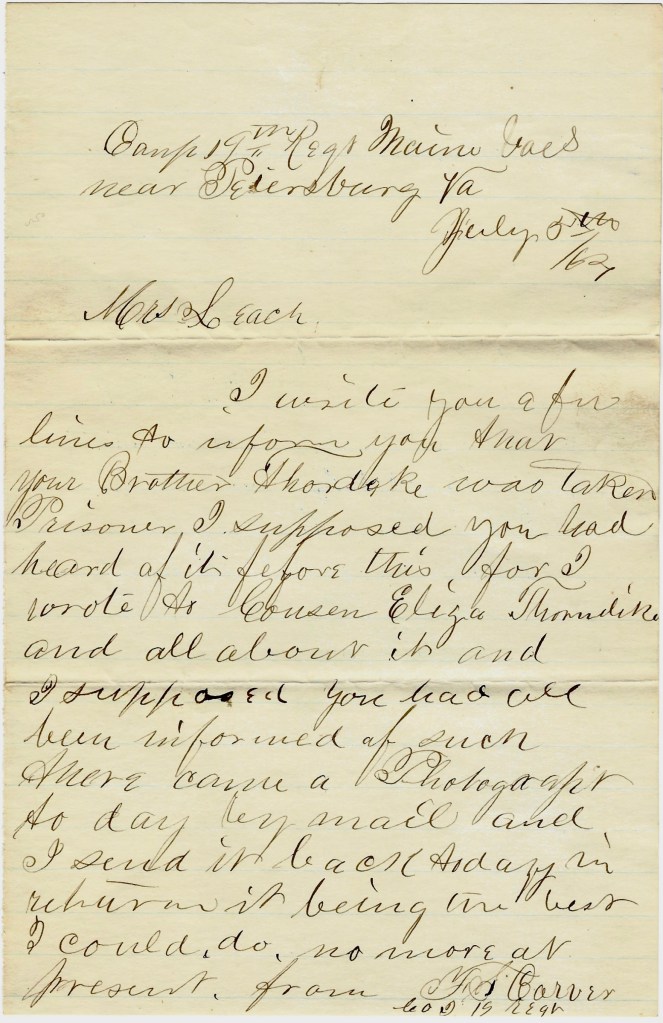 Camp 19th Regt Maine Vols
near Petersburg Va
July 5th
/64
Mrs Leach
I write you a few
lines to inform you that
your Brother Thordake was taken
Prisoner, I supposed you had
heard of it before this, for I
wrote to Cousen Eliza Thorndike
and all about it and
I supposed you had all
been informed of such
there came a Photograpt
to day by mail and
I send it back today in
return it being the best
I could, do, no more at
present. from F S Carver
Co D 19 Regt